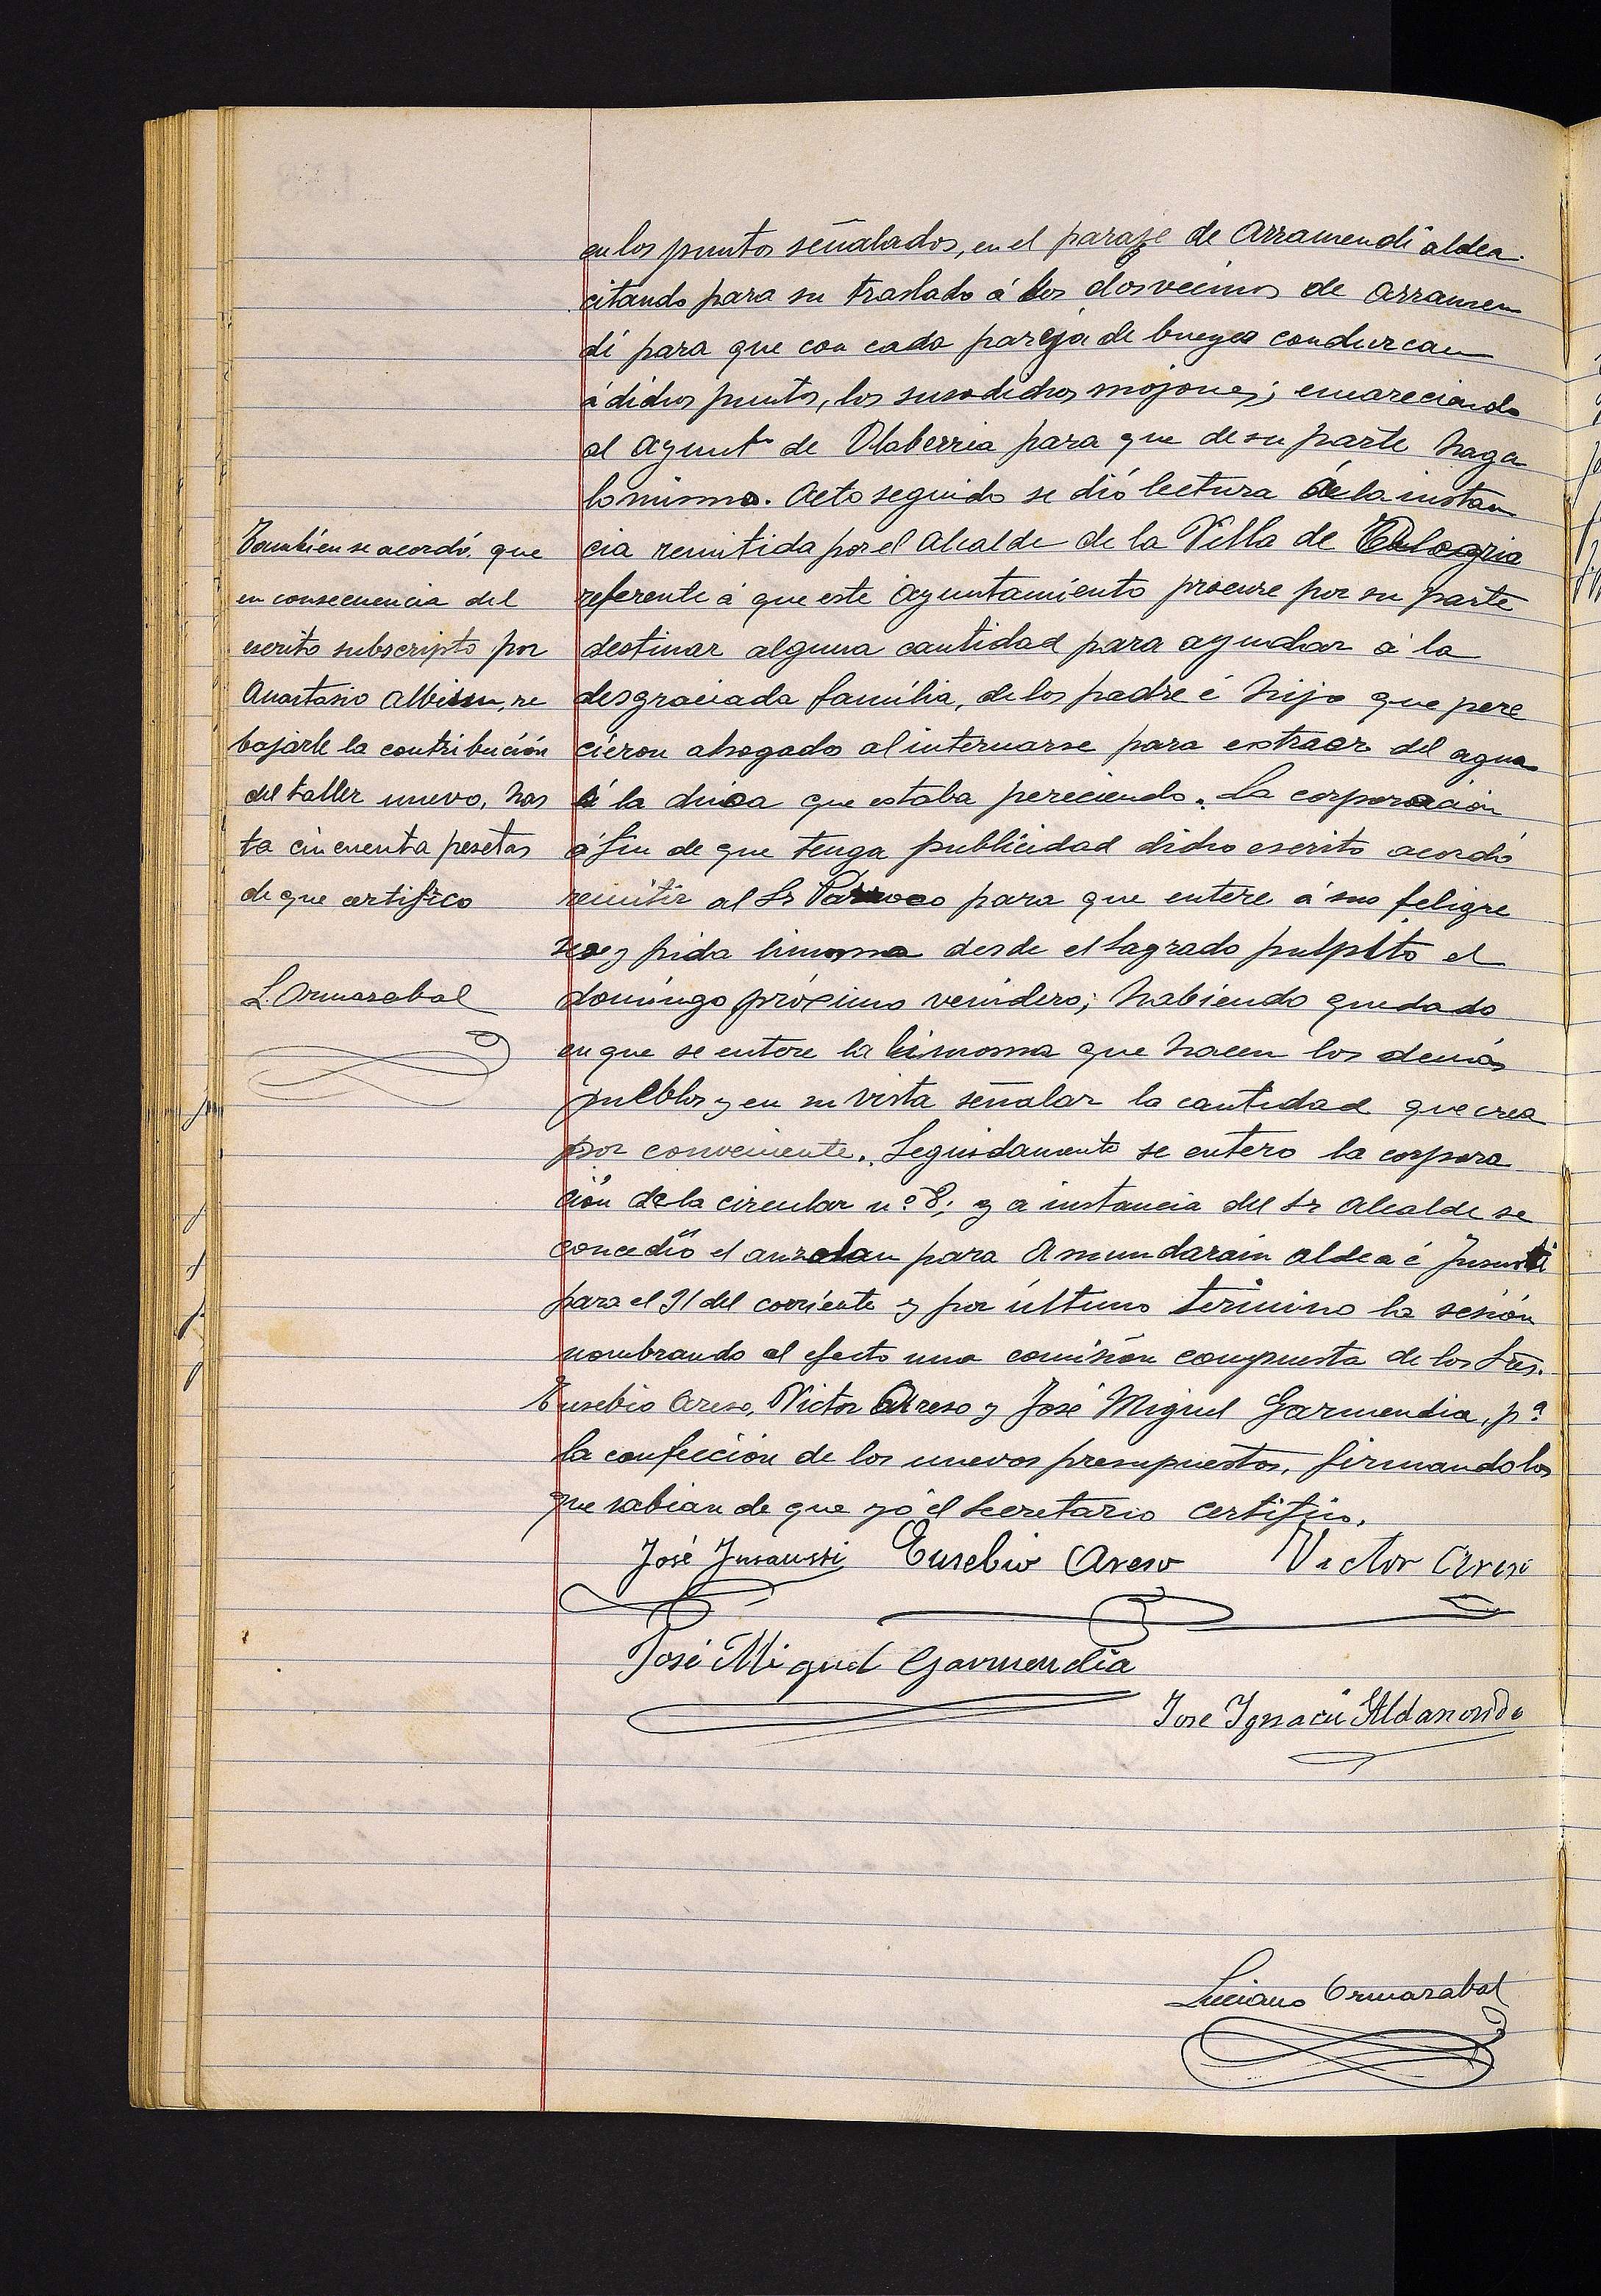 en los puntos señalados, en el paraje de Arramendi aldea.
citando para su traslado á los dos vecinos de Arramen
di para que con cada pareja de bueyes condurcan
á dichos puntos, los susodichos mojones; encareciendo
al Ayunt.º de Olaberria para que de su parte haga
lo mismo. Acto seguido se dió lectura de la instan
cia remitida por el Alcalde de la Villa de
referente á que este Ayuntamiento procure por su parte
destinar alguna cantidad para ayudar á la
desgraciada familia, de los padre é hijo que pere
cieron ahogado al internarse para extraer del agua
á la chica que estaba pereciendo. La corporación
á fin de que tenga publicidad dicho escrito acordó
remitir al Sr Párroco para que entere á sus feligre
ses y pida limosna desde el Sagrado pulpito el
domingo próximo venidero; habiendo quedado
en que se entere la limosna que hacen los demás
pueblos y en su vista señalar la cantidad que crea
por conveniente. Seguidamente se entero la corpora
ción de la circular nº 8; y a instancia del Sr Alcalde se
concedió el auzalan para Amundarain aldea é
para el 31 del corriente y por último termino la sesión
nombrando al efecto una comisión compuesta de los Sres.
Eusebio Areso, Victor Areso y José Miguel Garmendia, pª
la confección de los nuevos presupuestos, firmando los
que sabian de que yo el Secretario certifico.
También se acordó que
en consecuencia del
escrito subscripto por
Anastasio Albisu, re
bajarle la contribución
del taller nuevo, has
ta cincuenta pesetas
de que certifico
L. Ormazabal
José Insausti Eusebio Areso Victor Areso
José Miguel Garmendia
Jose Ignacio Aldanondo
Luciano Ormazabal